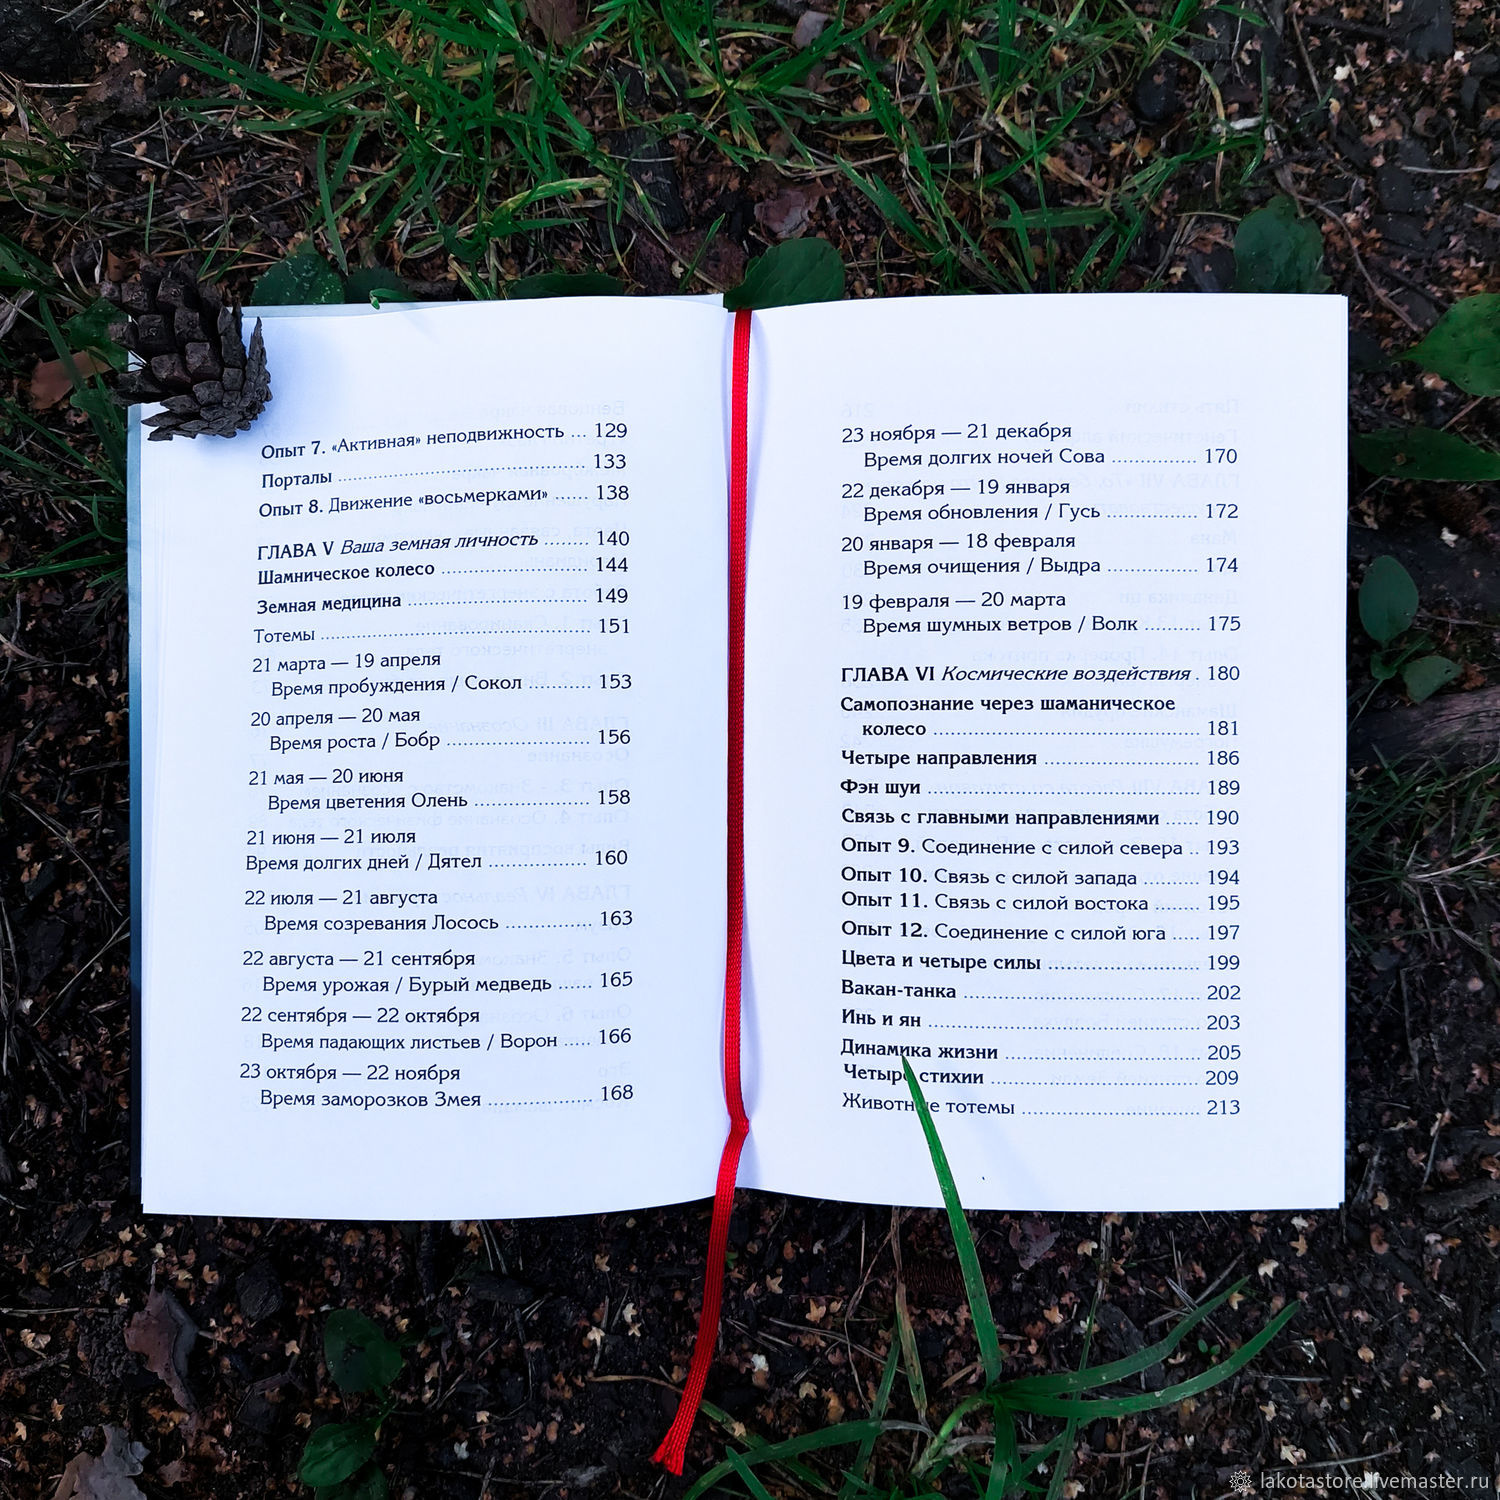 Опыт 7. «Активная» неподвижность ... 129
Порталы ........................................ 133
Опыт 8. Движение «восьмерками» ...... 138
ГЛАВА V Ваша земная личность ........ 140
Шамническое колесо ......................... 144
Земная медицина .............................. 149
Тотемы ............................................ 151
21 марта — 19 апреля
Время пробуждения / Сокол .......... 153
20 апреля — 20 мая
Время роста / Бобр ....................... 156
21 мая — 20 июня
Время цветения Олень ................... 158
21 июня — 21 июля
Время долгих дней / Дятел ................ 160
22 июля — 21 августа
Время созревания Лосось ............... 163
22 августа — 21 сентября
Время урожая / Бурый медведь ...... 165
22 сентября — 22 октября
Время падающих листьев / Ворон ..... 166
23 октября — 22 ноября
Время заморозков Змея ................. 168
23 ноября — 21 декабря
Время долгих ночей Сова .............. 170
22 декабря — 19 января
Время обновления / Гусь ............... 172
20 января — 18 февраля
Время очищения / Выдра ............... 174
19 февраля — 20 марта
Время шумных ветров / Волк ......... 175
ГЛАВА VI Космические воздействия . 180
Самопознание через шаманическое
колесо ............................................ 181
Четыре направления ......................... 186
Фэн шуи ........................................... 189
Связь с главными направлениями ...... 190
Опыт 9. Соединение с силой севера .. 193
Опыт 10. Связь с силой запада .......... 194
Опыт 11. Связь с силой востока ........ 195
Опыт 12. Соединение с силой юга ..... 197
Цвета и четыре силы ......................... 199
Вакан-танка ...................................... 202
Инь и ян ........................................... 203
Динамика жизни ................................ 205
Четыре стихии .................................. 209
Животные тотемы .............................. 213
lakotastore.livemaster.ru